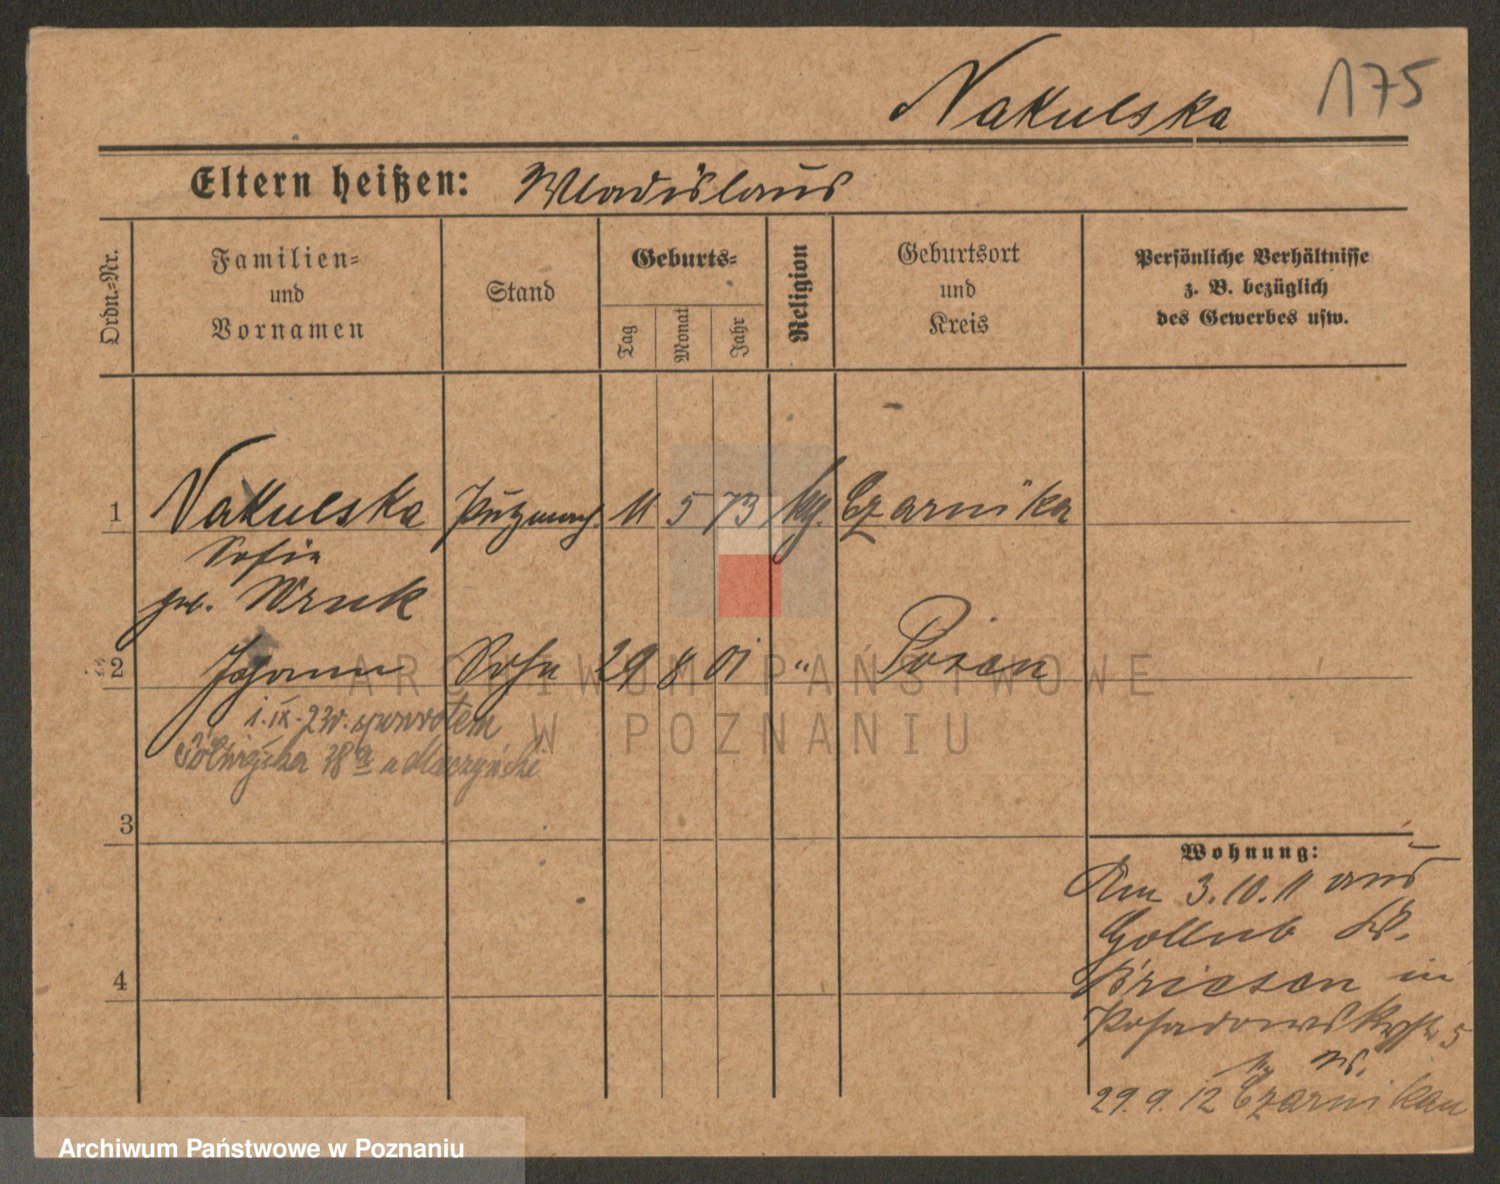 Nakulska 175
Eltern heißen: Wladislaus
Ordn.-Nr.
Familien-
und
Vornamen
Stand
Geburts-
Tag
Monat
Jahr
Religion
Geburtsort
und
Kreis
Persönliche Verhältnisse
z. B. bezüglich
des Gewerbes usw.
1 Nakulska Putzmach. 11 5 73 Czarnika
Sofie
geb. Wruk
2 Johann Sohn 29 8 01 " Posen
1.IX.23r. spowrotem
Półwiejska 38a u
3
4
Wohnung:
Am 3.10.11 aus
Gollub Kr.
Briesen in
Posadowskystr 5
29.9.12 Czarnikau
ARCHIWUM PAŃSTWOWE
W POZNANIU
Archiwum Państwowe w Poznaniu